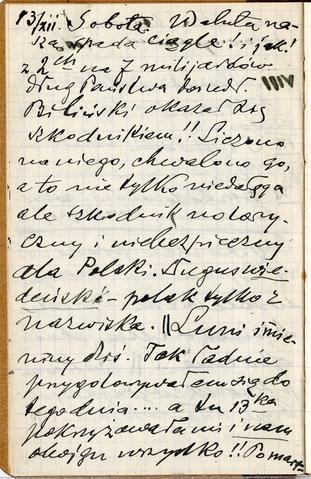 13/XII. Sobota. Waluta na-
sza spada ciągle! i jak!
z 2ch na 7 miljardów
dług Państwa doszedł.
Biliński okazał się
szkodnikiem!! Liczono
na niego, chwalono go,
a to nie tylko niedołęga
ale szkodnik notory-
czny i niebezpieczny
dla Polski.
deński – polak tylko z
nazwiska. || Luni imie-
niny dziś. Tak ładnie
przygotowywałem się do
tego dnia... a tu 13ka
pokrzyżowała mi i nam
wszystko!!